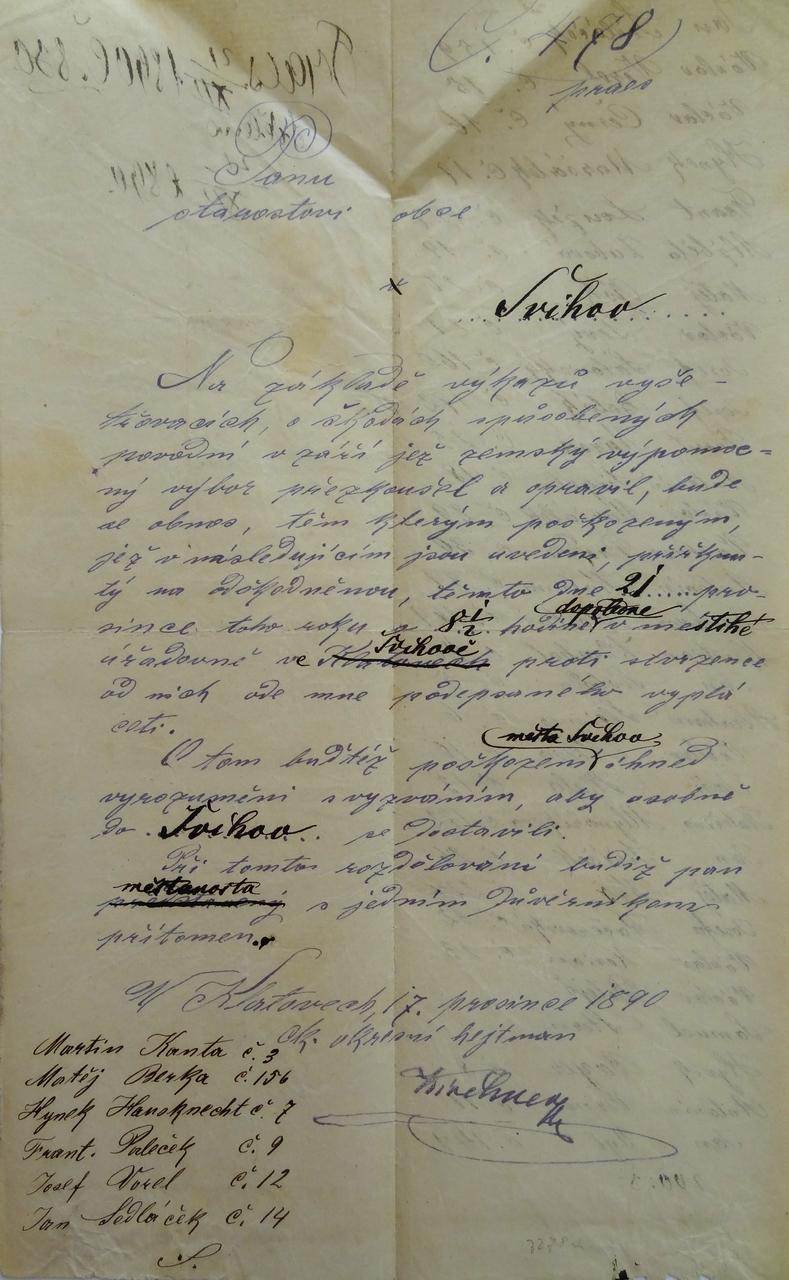 Č. 478
praes
Panu
starostovi obce
v
Švihov
Na základě výkazů vyše-
třovacích, o škodách způsobených
povodní v září jež zemský výpomoc=
ný výbor přezkoušel a opravil, bude
se obnos, těm kterým poškozeným,
jéž v následujícím jsou uvedeni, přiřknu-
tý na odškodněnou, těmto dne 21 pro-
since toho roku o 8½ hodině dopoledne v městské
úřadovně ve Švihově Klatovech proti stvrzence
od nich ode mne podepsaného vyplá
ceti.
O tom buďtéž poškození města Švihov ihned
vyrozuměni s vyzváním, aby osobně
do Švihov se dostavili.
Při tomto rozdělování budiž pan
měšťanosta
s jedním důvěrníkem
přítomen.
V Klatovech, 17. prosince 1890
ck. okresní hejtman
Martin Kanta č. 3
Matěj Berka č. 156
Hynek Hausknecht č. 7
Frant. Paleček č. 9
Josef Vorel č. 12
Jan Sedláček č. 14